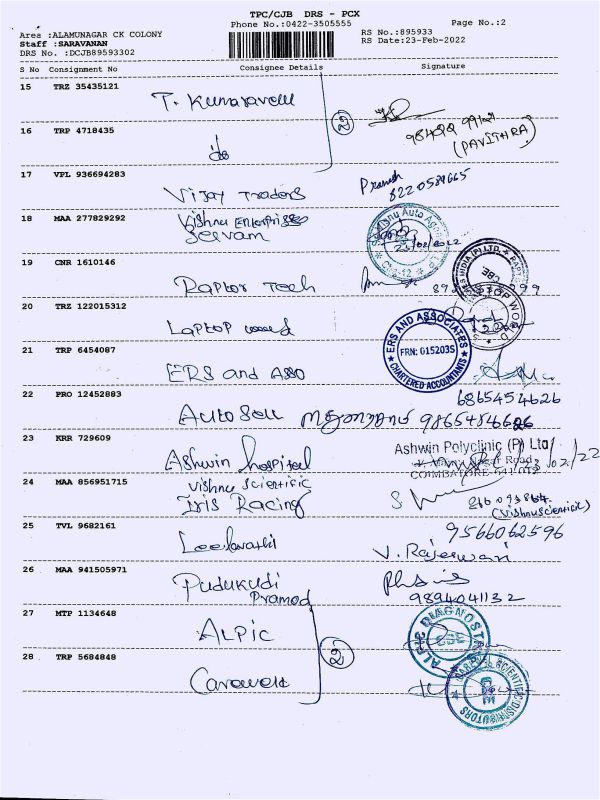 TPC/CJB DRS - PCX
Phone No.:0422-3505555
Page No.:2
Area :ALAMUNAGAR CK COLONY
Staff :SARAVANAN
DRS No. :DCJB89593302
RS No.:895933
RS Date:23-Feb-2022
S No Consignment No Consignee Details Signature
15 TRZ 35435121
T. Kumaravelu
(2)
16 TRP 4718435
do
(PAVITHRA)
17 VPL 936694283
Vijay Traders
Pramesh
8220589665
18 MAA 277829292
Vishnu Enterprises
Seevam
19 CNR 1610146
Raptor Tech
20 TRZ 122015312
Laptop world
21 TRP 6454087
ERS and Asso
ERS AND ASSOCIATES
FRN: 015203S
CHARTERED ACCOUNTANTS
22 PRO 12452883
6865454626
Auto Sell
23 KRR 729609
Ashwin hospital
Ashwin Polyclinic (P) Ltd
COIMBATORE-641 012
23/02/22
24 MAA 856951715
Vishnu Scientific
Iris Racing
(Vishnu Scientific)
25 TVL 9682161
Leelavathi
9566062596
V. Rajeswari
26 MAA 941505971
Pudukudi
Pramod
9894041132
27 MTP 1134648
ALPIC
(2)
28 TRP 5684848
Caravela